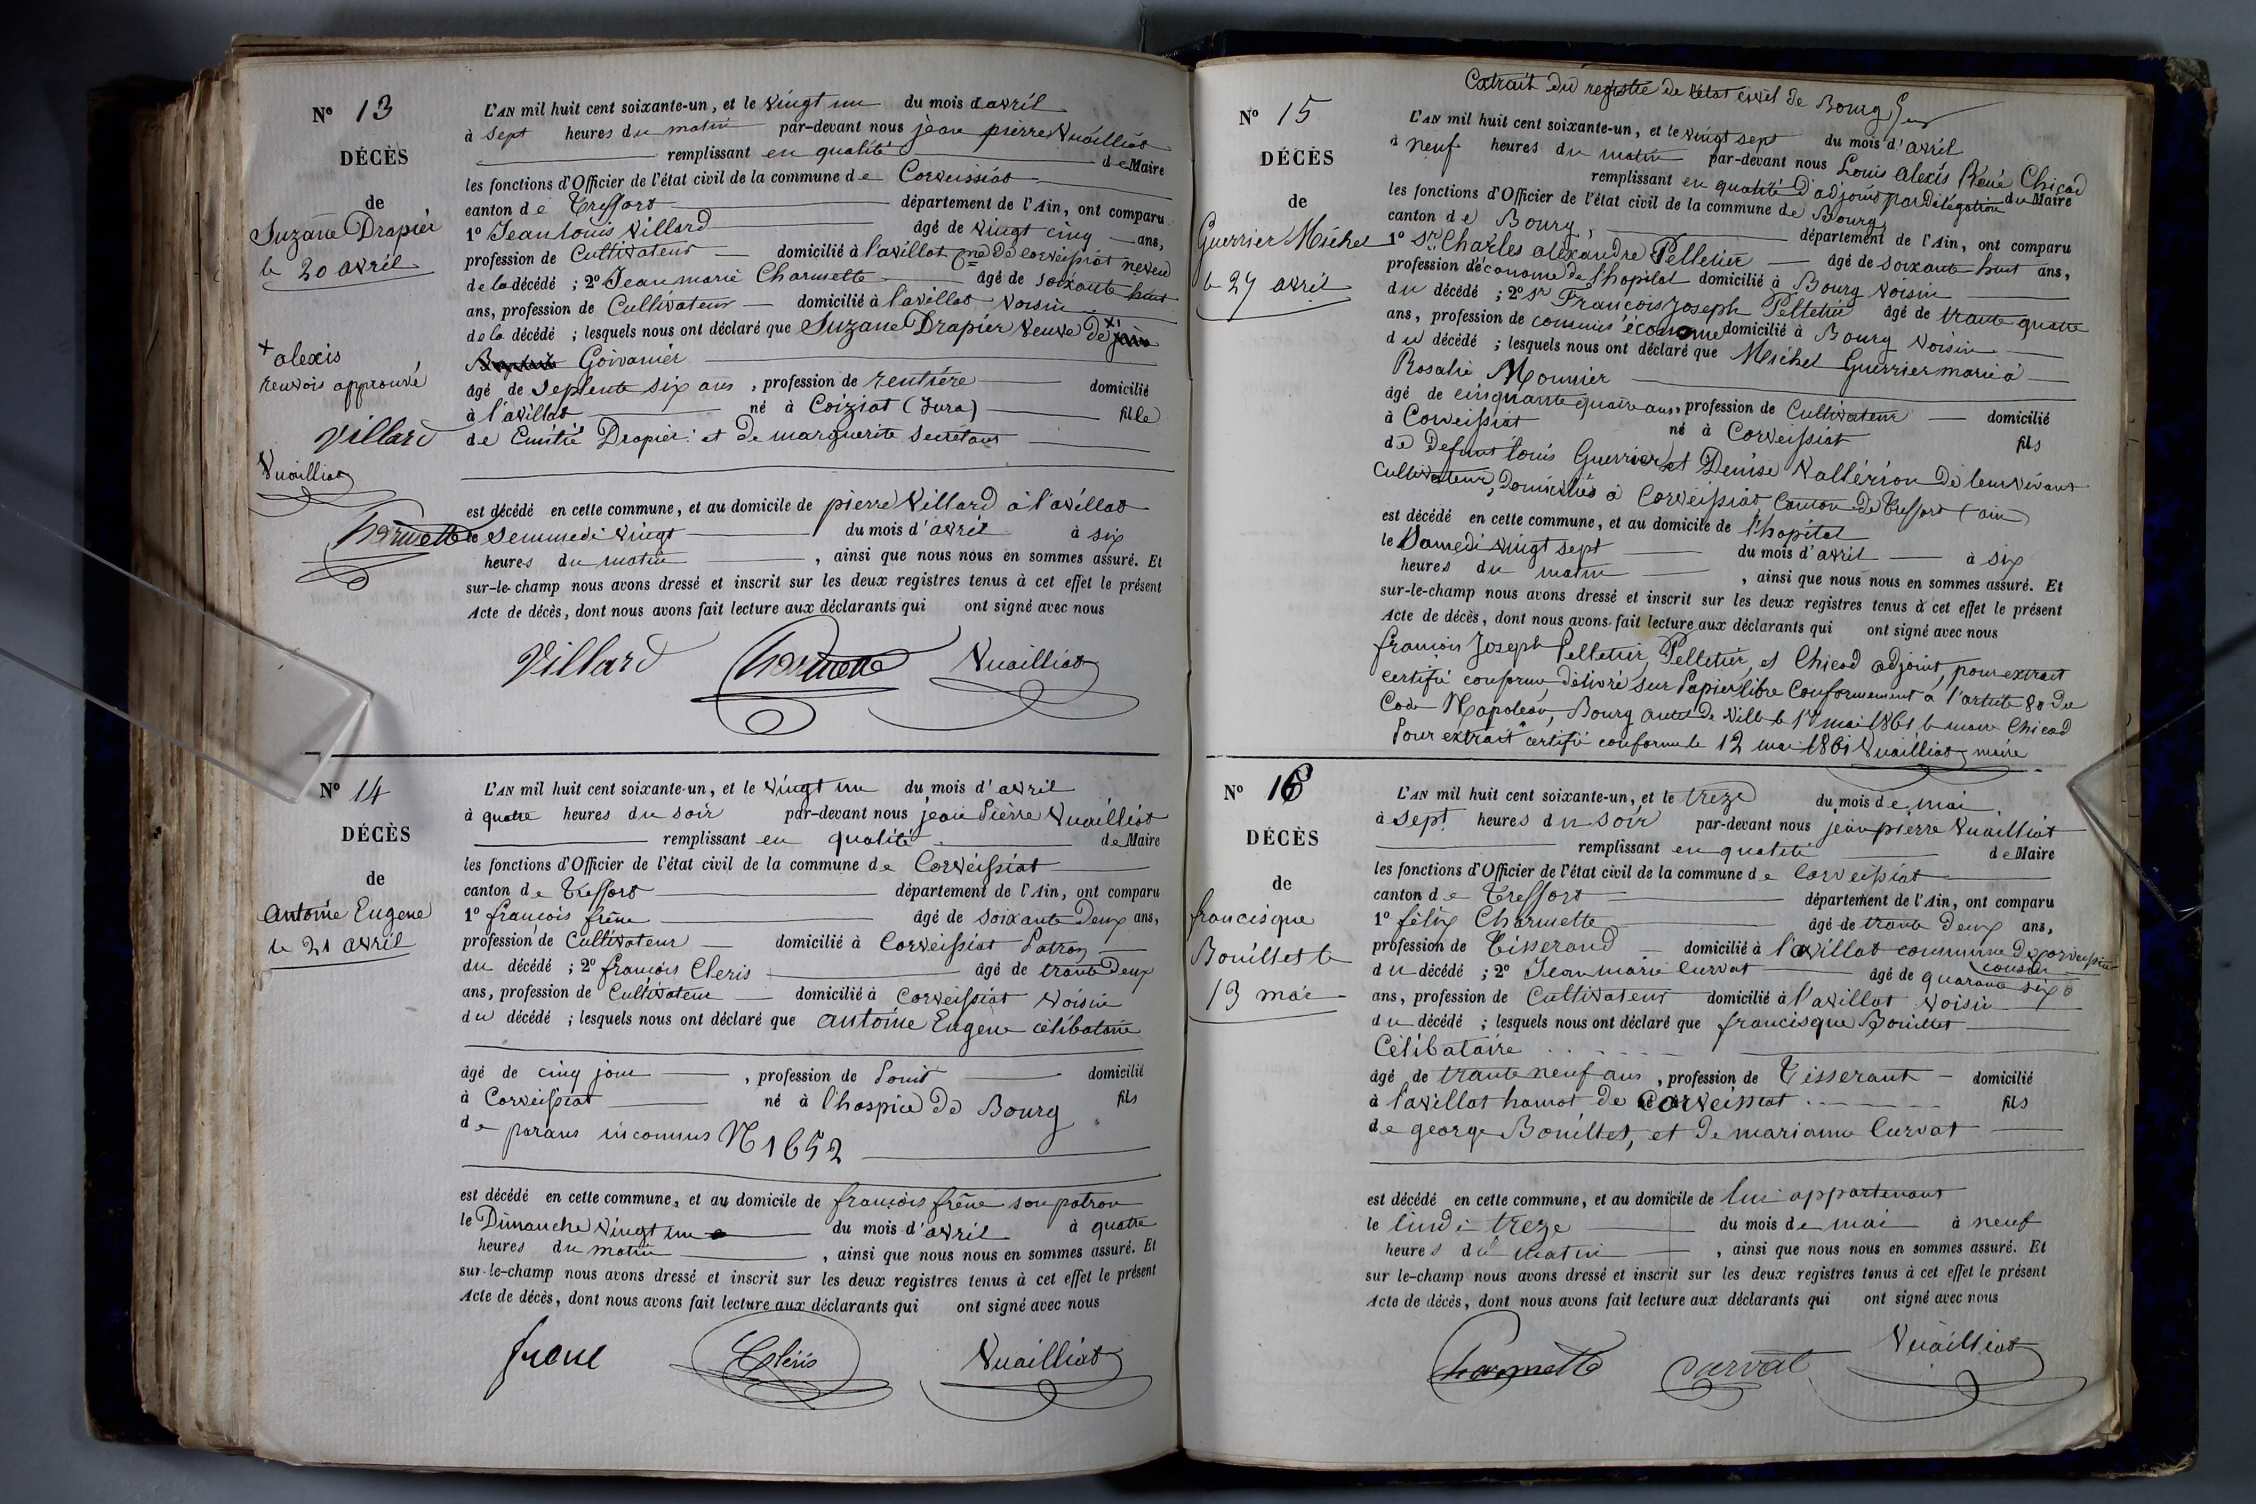 N° 13
DÉCÈS
de
Suzane Drapier
le 20 avril
+ alexis
renvois approuvé
Villard
Nuailliat
Charmette
L'AN mil huit cent soixante-un, et le vingt un du mois d'avril
à sept heures du matin par-devant nous jean pierre Nuailliat
remplissant en qualité de Maire
les fonctions d'Officier de l'état civil de la commune de Corveissiat
canton de Treffort département de l'Ain, ont comparu
1° Jean louis Villard âgé de vingt cinq ans,
profession de Cultivateur domicilié à lavillat Cne de corveissiat neveu
de la décédé ; 2° Jean marie Charmette âgé de soixante huit
ans, profession de Cultivateur domicilié à lavillat voisin
de la décédé ; lesquels nous ont déclaré que Suzane Drapier veuve de
Goivanier
âgé de septente six ans, profession de rentière domicilié
à l'avillat né à Coiziat (Jura) fille
de Drapier et de marguerite secretant
est décédé en cette commune, et au domicile de pierre Villard à l'avillat
le semmedi vingt du mois d'avril à six
heures du matin, ainsi que nous nous en sommes assuré. Et
sur-le-champ nous avons dressé et inscrit sur les deux registres tenus à cet effet le présent
Acte de décès, dont nous avons fait lecture aux déclarants qui ont signé avec nous
Villard Charmette Nuailliat
N° 14
DÉCÈS
de
Antoine Eugene
le 21 avril
L'AN mil huit cent soixante-un, et le vingt un du mois d'avril
à quatre heures du soir par-devant nous jean Pierre Nuailliat
remplissant en qualité de Maire
les fonctions d'Officier de l'état civil de la commune de Corveissiat
canton de Treffort département de l'Ain, ont comparu
1° françois frêne âgé de soixante Deux ans,
profession de Cultivateur domicilié à Corveissiat Patron
du décédé ; 2° françois Cleris âgé de trante Deux
ans, profession de Cultivateur domicilié à Corveissiat voisin
du décédé ; lesquels nous ont déclaré que antoine Eugene célibataire
âgé de cinq jour, profession de domicilié
à Corveissiat né à l'hospice de Bourg fils
de parans inconnus N 1652
est décédé en cette commune, et au domicile de françois frêne son patron
le Dimanche vingt un du mois d'avril à quatre
heures du matin, ainsi que nous nous en sommes assuré. Et
sur-le-champ nous avons dressé et inscrit sur les deux registres tenus à cet effet le présent
Acte de décès, dont nous avons fait lecture aux déclarants qui ont signé avec nous
frene Cléris Nuailliat
Extrait du registre de l'état civil de Bourg
N° 15
DÉCÈS
de
Guerrier Michel
le 27 avril
L'AN mil huit cent soixante-un, et le vingt sept du mois d'avril
à neuf heures du matin par-devant nous Louis alexis René Chicod
remplissant en qualité d'adjoint par délégation du Maire
les fonctions d'Officier de l'état civil de la commune de Bourg
canton de Bourg, département de l'Ain, ont comparu
1° Sr Charles alexandre Pelletier âgé de soixante huit ans,
profession d'économe de l'hopital domicilié à Bourg voisin
du décédé ; 2° Sr François Joseph Pelletier âgé de trante quatre
ans, profession de commis économe domicilié à Bourg voisin
du décédé ; lesquels nous ont déclaré que Michel Guerrier marié à
Rosalie Monnier
âgé de cinquante quatre ans, profession de Cultivateur domicilié
à Corveissiat né à Corveissiat fils
de Defunt louis Guerrier et Denise Vallérion de leur vivant
cultivateur, domiciliés à Corveissiat, Canton de Treffort (ain)
est décédé en cette commune, et au domicile de l'hopital
le Samedi vingt sept du mois d'avril à six
heures du matin, ainsi que nous nous en sommes assuré. Et
sur-le-champ nous avons dressé et inscrit sur les deux registres tenus à cet effet le présent
Acte de décès, dont nous avons fait lecture aux déclarants qui ont signé avec nous
françois Joseph Pelletier, Pelletier, et Chicod adjoint, pour extrait
certifié conforme, délivré sur Papier libre Conformement a l'article 80 du
Code Napoleon, Bourg de Ville le 1er mai 1861 le maire Chicod
Pour extrait certifié conforme le 12 mai 1861 Nuailliat maire
N° 16
DÉCÈS
de
francisque
Bouillet le
13 mai
L'AN mil huit cent soixante-un, et le treze du mois de mai
à sept heures du soir par-devant nous jean pierre Nuailliat
remplissant en qualité de Maire
les fonctions d'Officier de l'état civil de la commune de Corveissiat
canton de Treffort département de l'Ain, ont comparu
1° félix Charmette âgé de trante Deux ans,
profession de Tisserand domicilié à l'avillat commune de corveissiat
cousin
du décédé ; 2° Jean marie Curvat âgé de quarante six
ans, profession de Cultivateur domicilié à l'avillat voisin
du décédé ; lesquels nous ont déclaré que francisque Bouillet
Célibataire
âgé de trante neuf ans, profession de Tisserant domicilié
à lavillat hamot de corveissiat fils
de george Bouillet, et de marianne Curvat
est décédé en cette commune, et au domicile de lui appartenant
le lundi treze du mois de mai à neuf
heures du matin, ainsi que nous nous en sommes assuré. Et
sur le-champ nous avons dressé et inscrit sur les deux registres tenus à cet effet le présent
Acte de décès, dont nous avons fait lecture aux déclarants qui ont signé avec nous
Charmette Curvat Nuailliat